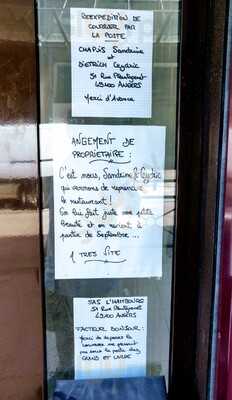 REEXPEDITION DE
COURRIER PAR
LA POSTE
CHAPUIS Sandrine
et
DIETRICH Cédric
51 Rue Plantagenet
49100 ANGERS
Merci d'Avance
ANGEMENT DE
PROPRIETAIRE :
C'est nous, Sandrine & Cédric
qui venons de reprendre
le restaurant !
On lui fait juste une petite
beauté et on revient à
partir de Septembre ...
A TRES VITE
SAS L'HAMBOURG
51 Rue Plantagenet
49100 ANGERS
FACTEUR BONJOUR :
Merci de déposer le
courrier en passant
par sous la porte chez